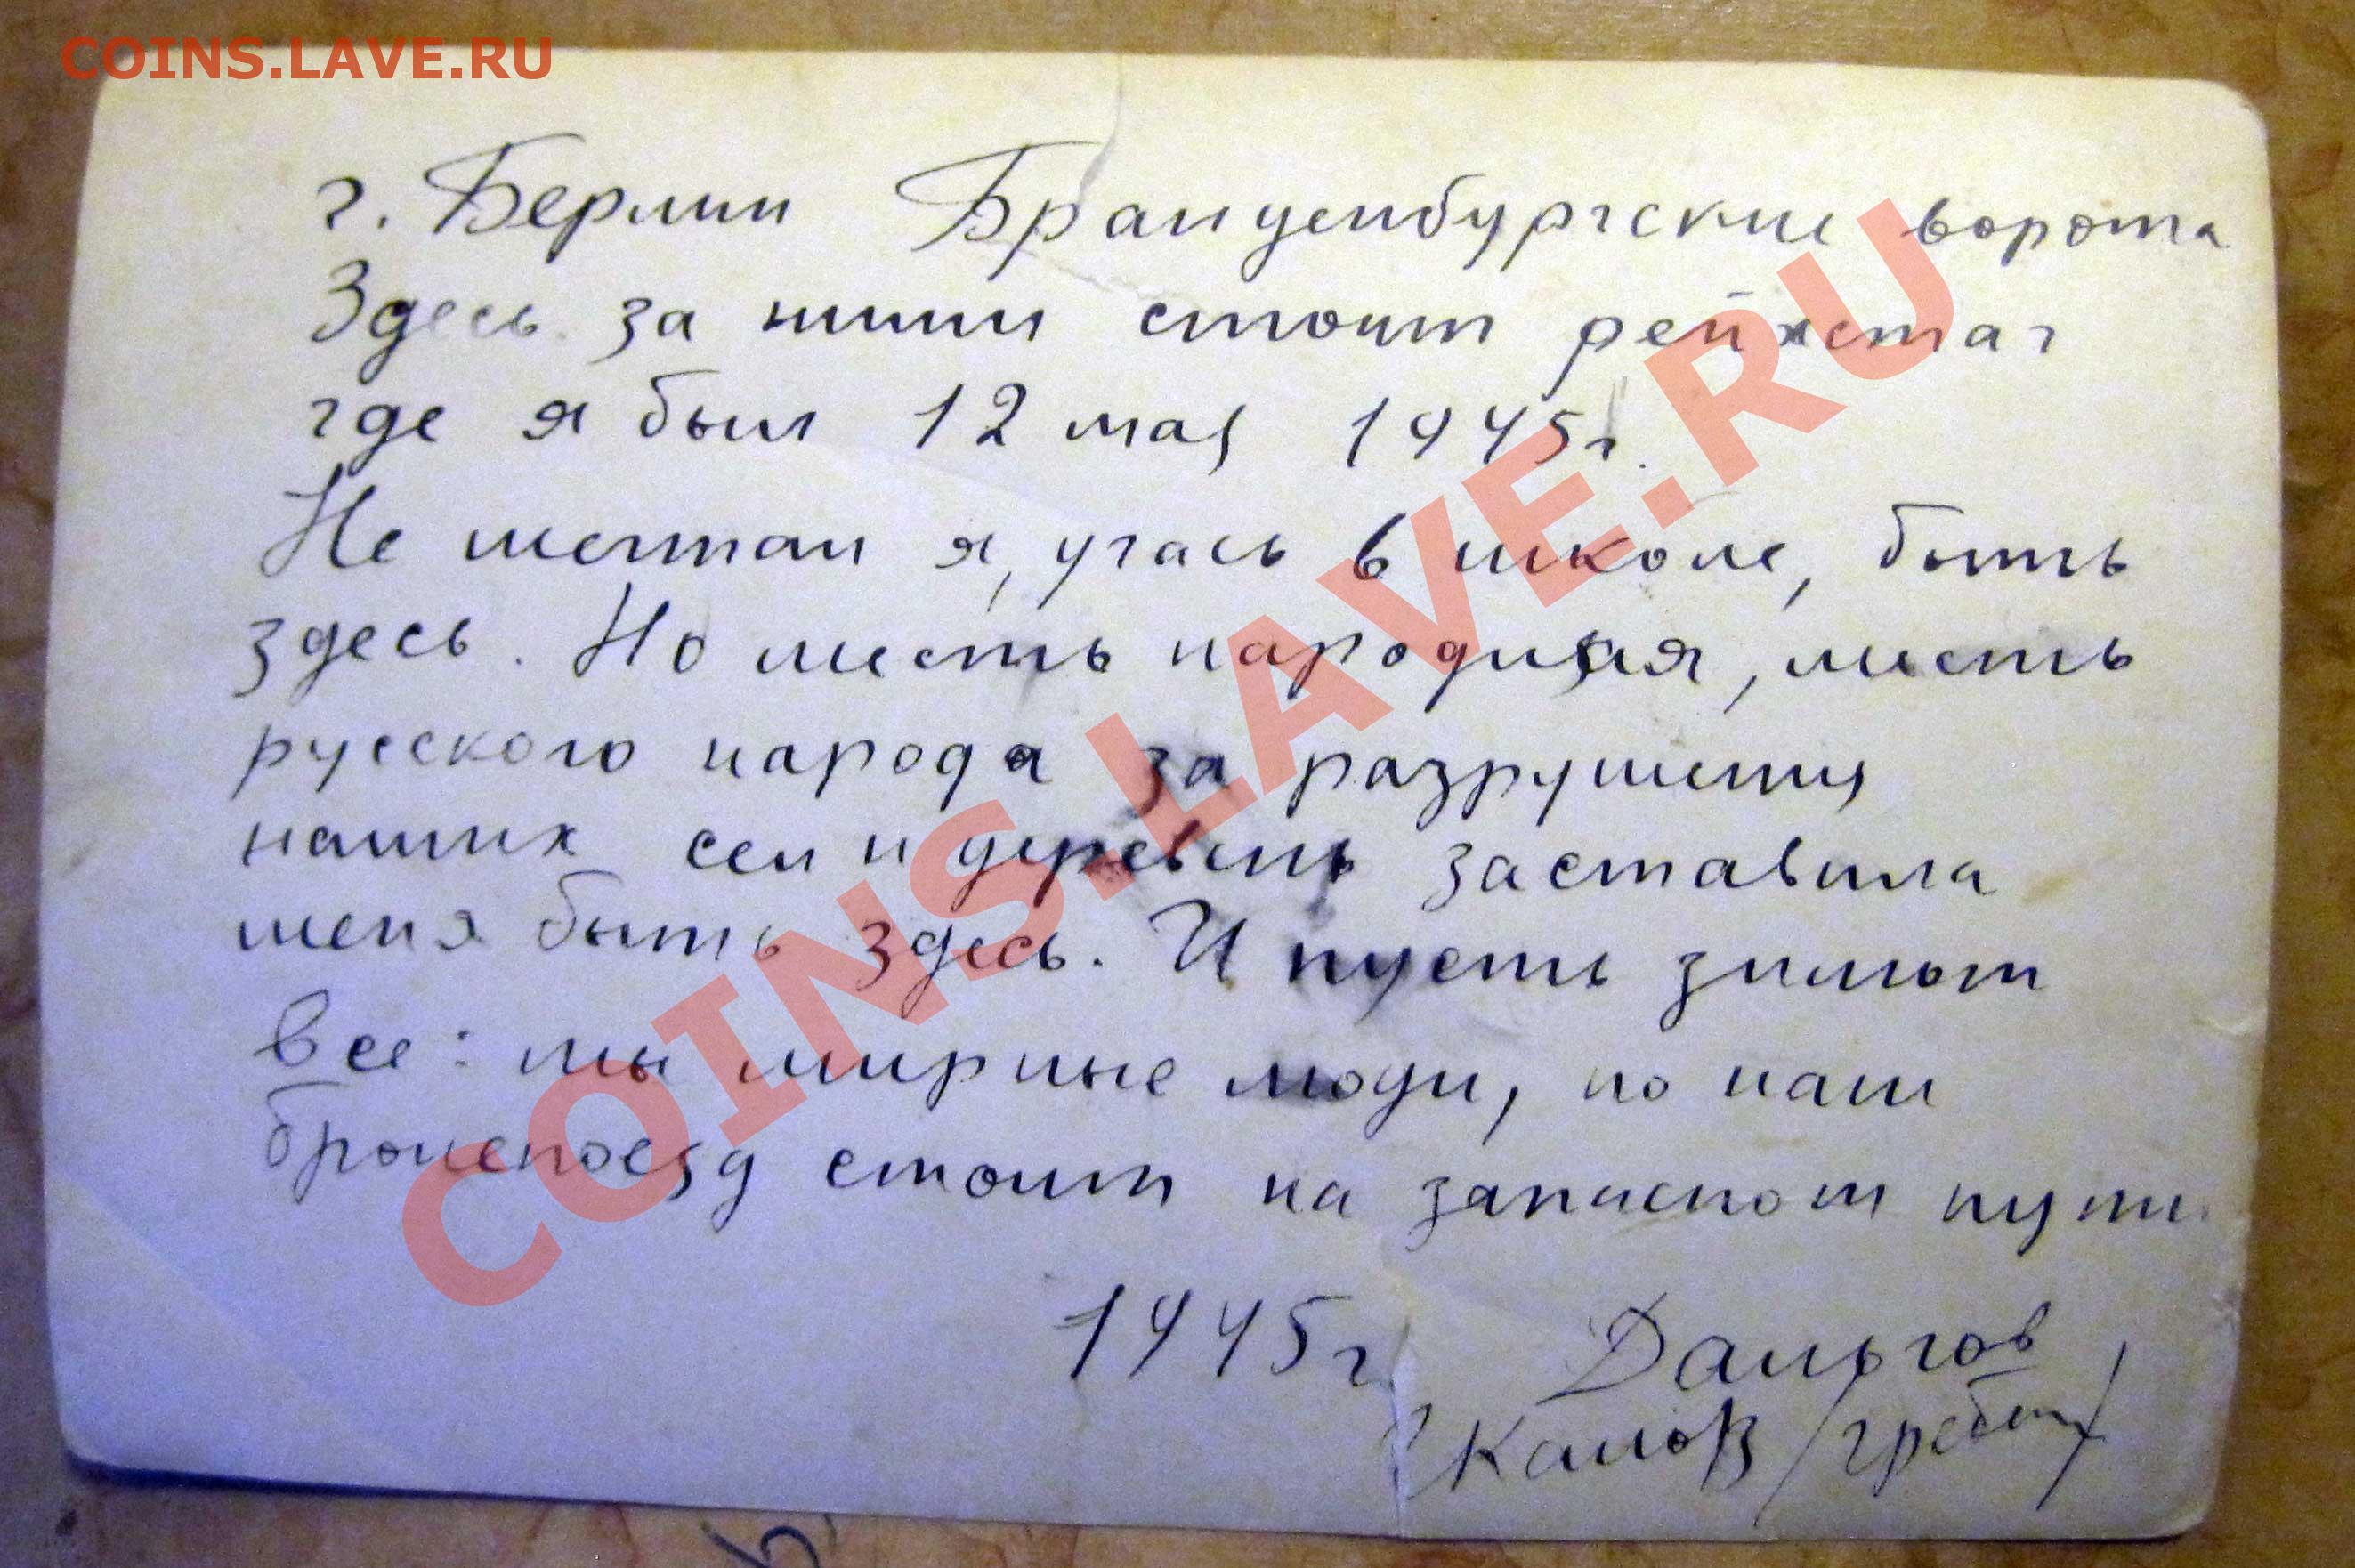 COINS.LAVE.RU
г. Берлин Бранденбургские ворота
Здесь за ними стоит рейхстаг
где я был 12 мая 1945г.
Не мечтал я, учась в школе, быть
здесь. Но месть народная, месть
русского народа за разрушения
наших сел и деревень заставила
меня быть здесь. И пусть знают
все: мы мирные люди, но наш
бронепоезд стоит на запасном пути
1945г Дальгов
COINS.LAVE.RU